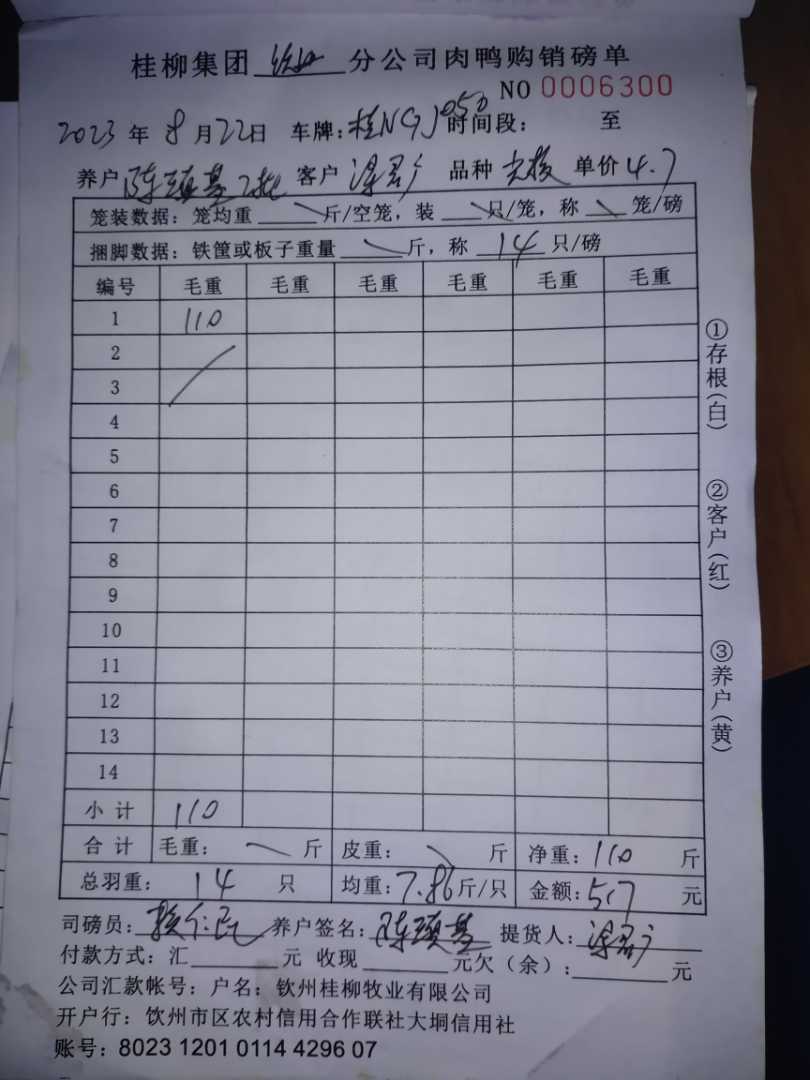 桂柳集团 钦州 分公司肉鸭购销磅单
NO 0006300
2023 年 8 月 22 日 车牌: 桂NGJ050 时间段: 至
养户 陈颈基2批 客户 品种 单价 4.7
笼装数据: 笼均重 斤/空笼, 装 只/笼, 称 笼/磅
捆脚数据: 铁筐或板子重量 斤, 称 14 只/磅
编号 毛重 毛重 毛重 毛重 毛重 毛重
1 110
2
3
4
5
6
7
8
9
10
11
12
13
14
小计 110
合计 毛重: 斤 皮重: 斤 净重: 110 斤
总羽重: 14 只 均重: 7.86 斤/只 金额: 517 元
司磅员: 养户签名: 陈颈基 提货人:
付款方式: 汇 元 收现 元欠(余): 元
公司汇款帐号: 户名: 钦州桂柳牧业有限公司
开户行: 饮州市区农村信用合作联社大垌信用社
账号: 8023 1201 0114 4296 07
①存根(白)
②客户(红)
③养户(黄)